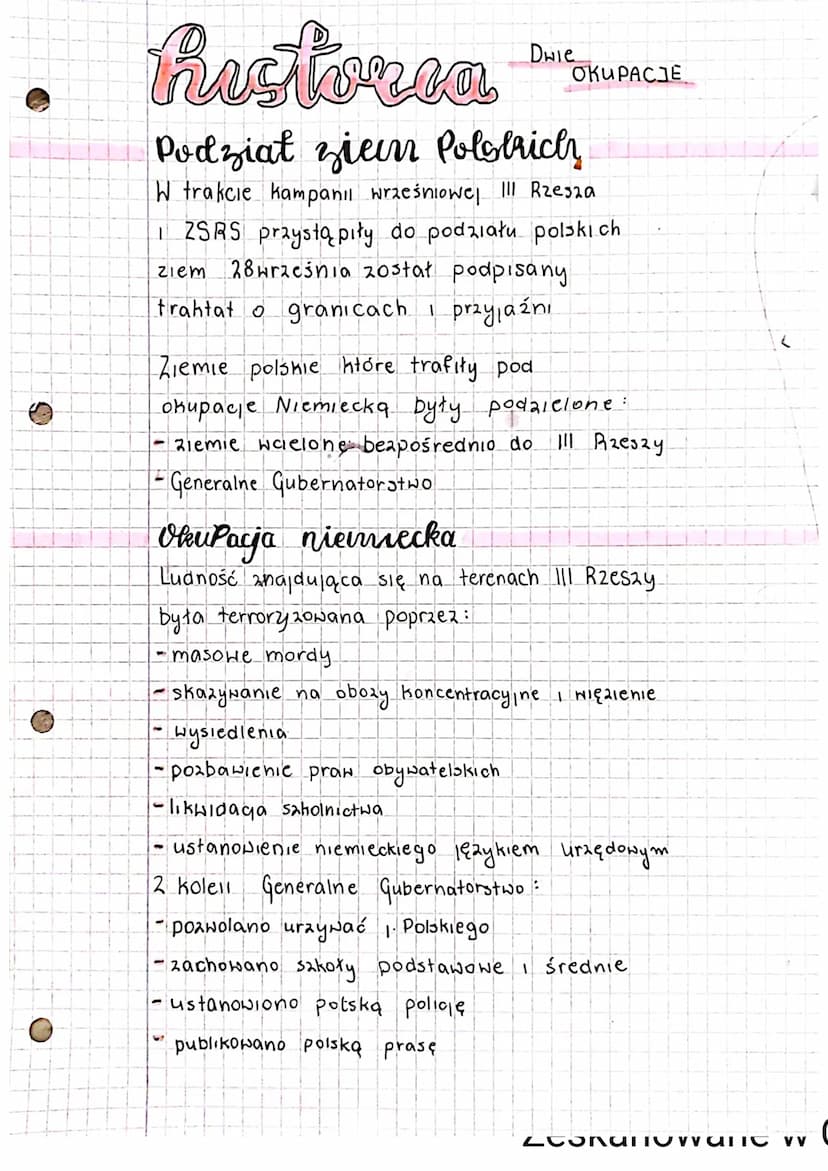 historia
Dwie
OKUPACJE
Podział ziem Polskich
W trakcie kampanii wrześniowej III Rzesza
i ZSRS przystąpiły do podziału polskich
ziem 28 września został podpisany
traktat o granicach i przyjaźni
Ziemie polskie które trafiły pod
okupacje Niemiecką były podzielone:
- ziemie wcielone bezpośrednio do III Rzeszy
- Generalne Gubernatorstwo
Okupacja niemiecka
Ludność znajdująca się na terenach III Rzeszy
była terroryzowana poprzez:
- masowe mordy
- skazywanie na obozy koncentracyjne i więzienie
- wysiedlenia
- pozbawienie praw obywatelskich
- likwidacja szkolnictwa
- ustanowienie niemieckiego językiem urzędowym
Z kolei Generalne Gubernatorstwo:
- pozwolano urzywać j. Polskiego
- zachowano szkoły podstawowe i średnie
- ustanowiono polską policję
- publikowano polską prasę
Zeskanowane w